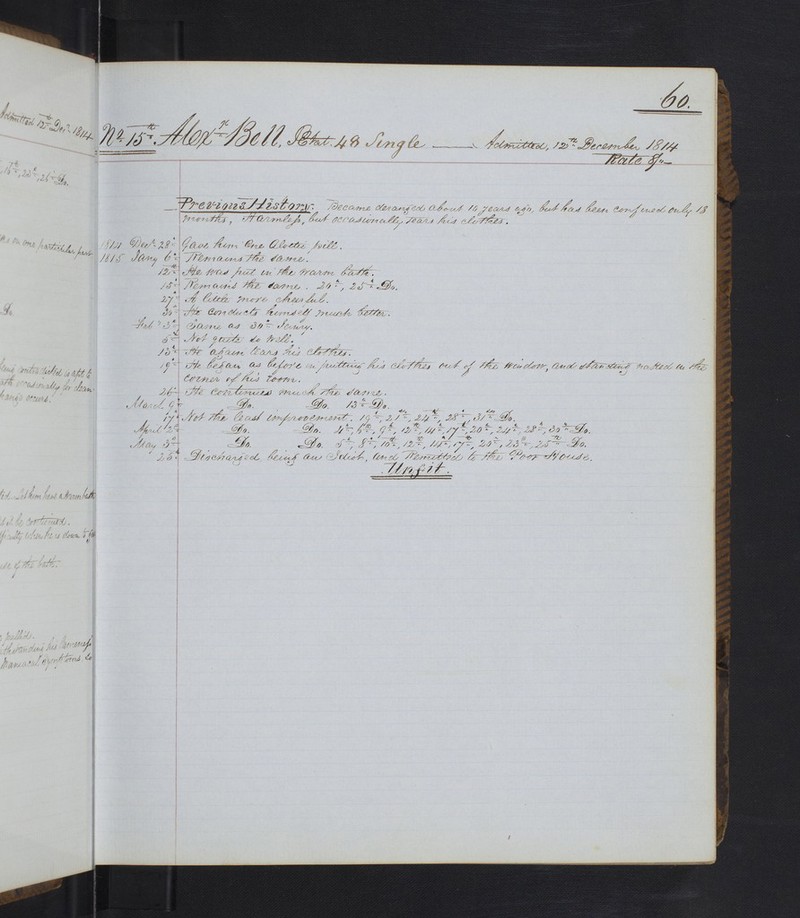 60.
No. 15th Alexr. Bell. Ætat. 48 Single — Admitted, 12th December 1814
Rate 8/-
Previous History. Became deranged about 10 years ago, but has been confined only 18
months, Harmless, but occasionally tears his clothes.
1814 Decr. 28th Gave him One Aloetic pill.
1815 Jany 6th Remains the same.
12th He was put in the warm bath.
15th Remains the same. 20th, 25th Do.
27th A little more cheerful.
30th He conducts himself much better.
Feby 3d Same as 30th Jany.
5th Not quite so well.
13th He again tears his clothes.
19th He began as before in putting his clothes out of the window, and standing naked in the
corner of his room.
26th He continues much the same.
March 9th Do. Do. 13th Do.
17th Not the least improvement. 19th, 21st, 24th, 28th, 31st Do.
April 2d Do. Do. 4th, 6th, 9th, 12th, 14th, 17th, 20th, 24th, 28th, 30th Do.
May 3d Do. Do. 5th, 8th, 10th, 12th, 14th, 17th, 20th, 23d, 25th Do.
26th Discharged being an Idiot, and Remitted to the Poor House.
Unfit.
Admitted 12th Decr. 1814
18th, 22d, 26th Do.
on one particular part
Do.
occasionally for clean
change occurs.
Let him have a Warm bath
be continued.
when he is down
use of the bath.
Maniacal Symptoms